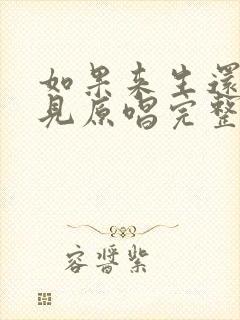 如果来生還
見原唱完整
容晋紫